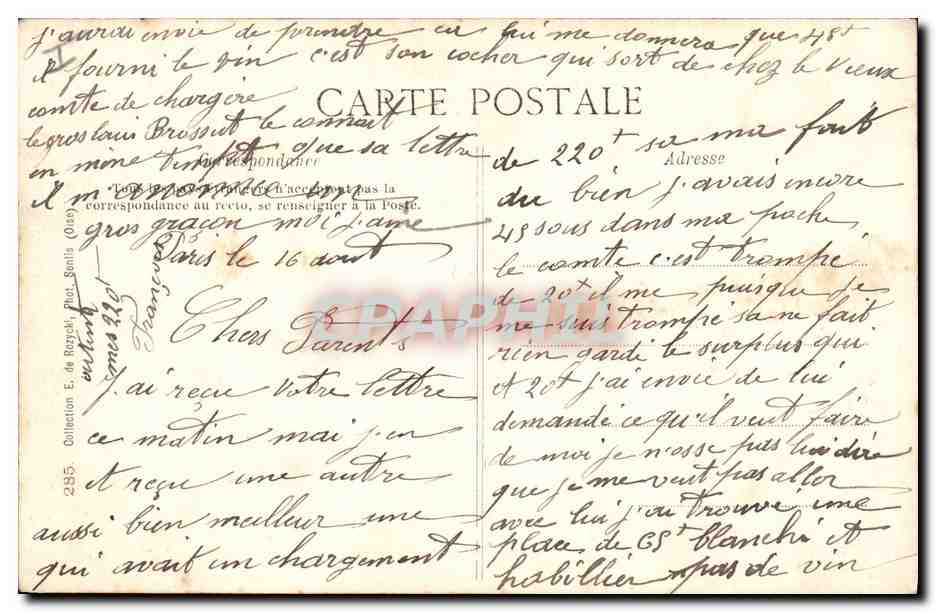 Chers Parents
j'ai reçue votre lettre
ce matin mai j'en
et reçu une autre
aussi bien meilleur une
qui avait un chargement
de 220f sa ma fait
du bien j'avais encore
49 sous dans ma poche
le comte c'est trompé
de 20f il me puisque je
me suis trompé sa ne fait
rien gardé le surplus qui
et 20f j'ai envie de lui
demandé ce qu'il veut faire
de moi je n'osse pas lui dire
que je me veut pas aller
avec lui j'ai trouvé une
place de 65f blanchi et
habillier pas de vin
j'aurai envie de prendre
me donnera que 48f
il fourni le vin c'est son cocher qui sort de chez le vieux
comte de chargère
le gros louis Brossut le connait
en même temps que sa lettre
il m'
gros graçon moi j'aime
Paris le 16 aout
François
CARTE POSTALE
Correspondance
Adresse
Tous les pays étrangers n'acceptent pas la
correspondance au recto, se renseigner à la Poste.
285. Collection E. de Rozycki, Phot. Senlis (Oise)
CPAPHIL